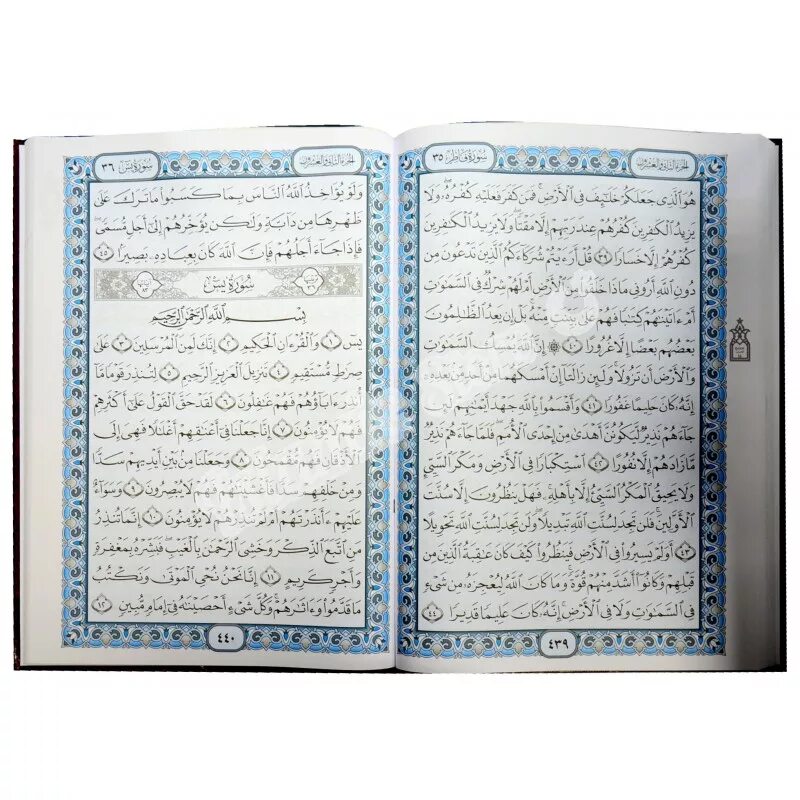 سورة فاطر ٣٥
الجزء الثاني والعشرون
هُوَ ٱلَّذِى جَعَلَكُمْ خَلَٰٓئِفَ فِى ٱلْأَرْضِ ۚ فَمَن كَفَرَ فَعَلَيْهِ كُفْرُهُۥ ۖ وَلَا
يَزِيدُ ٱلْكَٰفِرِينَ كُفْرُهُمْ عِندَ رَبِّهِمْ إِلَّا مَقْتًا ۖ وَلَا يَزِيدُ ٱلْكَٰفِرِينَ
كُفْرُهُمْ إِلَّا خَسَارًا ٣٩ قُلْ أَرَءَيْتُمْ شُرَكَآءَكُمُ ٱلَّذِينَ تَدْعُونَ مِن
دُونِ ٱللَّهِ أَرُونِى مَاذَا خَلَقُوا۟ مِنَ ٱلْأَرْضِ أَمْ لَهُمْ شِرْكٌ فِى ٱلسَّمَٰوَٰتِ
أَمْ ءَاتَيْنَٰهُمْ كِتَٰبًا فَهُمْ عَلَىٰ بَيِّنَتٍ مِّنْهُ ۚ بَلْ إِن يَعِدُ ٱلظَّٰلِمُونَ
بَعْضُهُم بَعْضًا إِلَّا غُرُورًا ٤٠ ۞ إِنَّ ٱللَّهَ يُمْسِكُ ٱلسَّمَٰوَٰتِ
وَٱلْأَرْضَ أَن تَزُولَا ۚ وَلَئِن زَالَتَآ إِنْ أَمْسَكَهُمَا مِنْ أَحَدٍ مِّنۢ بَعْدِهِۦٓ ۚ
إِنَّهُۥ كَانَ حَلِيمًا غَفُورًا ٤١ وَأَقْسَمُوا۟ بِٱللَّهِ جَهْدَ أَيْمَٰنِهِمْ لَئِن
جَآءَهُمْ نَذِيرٌ لَّيَكُونُنَّ أَهْدَىٰ مِنْ إِحْدَى ٱلْأُمَمِ ۖ فَلَمَّا جَآءَهُمْ نَذِيرٌ
مَّا زَادَهُمْ إِلَّا نُفُورًا ٤٢ ٱسْتِكْبَارًا فِى ٱلْأَرْضِ وَمَكْرَ ٱلسَّيِّئِ ۚ
وَلَا يَحِيقُ ٱلْمَكْرُ ٱلسَّيِّئُ إِلَّا بِأَهْلِهِۦ ۚ فَهَلْ يَنظُرُونَ إِلَّا سُنَّتَ
ٱلْأَوَّلِينَ ۚ فَلَن تَجِدَ لِسُنَّتِ ٱللَّهِ تَبْدِيلًا ۖ وَلَن تَجِدَ لِسُنَّتِ ٱللَّهِ تَحْوِيلًا
٤٣ أَوَلَمْ يَسِيرُوا۟ فِى ٱلْأَرْضِ فَيَنظُرُوا۟ كَيْفَ كَانَ عَٰقِبَةُ ٱلَّذِينَ مِن
قَبْلِهِمْ وَكَانُوٓا۟ أَشَدَّ مِنْهُمْ قُوَّةً ۚ وَمَا كَانَ ٱللَّهُ لِيُعْجِزَهُۥ مِن شَىْءٍ
فِى ٱلسَّمَٰوَٰتِ وَلَا فِى ٱلْأَرْضِ ۚ إِنَّهُۥ كَانَ عَلِيمًا قَدِيرًا ٤٤
٤٣٩
الجزء الثاني والعشرون
سورة يس ٣٦
وَلَوْ يُؤَاخِذُ ٱللَّهُ ٱلنَّاسَ بِمَا كَسَبُوا۟ مَا تَرَكَ عَلَىٰ
ظَهْرِهَا مِن دَآبَّةٍ وَلَٰكِن يُؤَخِّرُهُمْ إِلَىٰٓ أَجَلٍ مُّسَمًّى ۖ
فَإِذَا جَآءَ أَجَلُهُمْ فَإِنَّ ٱللَّهَ كَانَ بِعِبَادِهِۦ بَصِيرًۢا ٤٥
سُورَةُ يسٓ
بِسْمِ ٱللَّهِ ٱلرَّحْمَٰنِ ٱلرَّحِيمِ
يسٓ ١ وَٱلْقُرْءَانِ ٱلْحَكِيمِ ٢ إِنَّكَ لَمِنَ ٱلْمُرْسَلِينَ ٣ عَلَىٰ
صِرَٰطٍ مُّسْتَقِيمٍ ٤ تَنزِيلَ ٱلْعَزِيزِ ٱلرَّحِيمِ ٥ لِتُنذِرَ قَوْمًا مَّآ
أُنذِرَ ءَابَآؤُهُمْ فَهُمْ غَٰفِلُونَ ٦ لَقَدْ حَقَّ ٱلْقَوْلُ عَلَىٰٓ أَكْثَرِهِمْ
فَهُمْ لَا يُؤْمِنُونَ ٧ إِنَّا جَعَلْنَا فِىٓ أَعْنَٰقِهِمْ أَغْلَٰلًا فَهِىَ إِلَى
ٱلْأَذْقَانِ فَهُم مُّقْمَحُونَ ٨ وَجَعَلْنَا مِنۢ بَيْنِ أَيْدِيهِمْ سَدًّا
وَمِنْ خَلْفِهِمْ سَدًّا فَأَغْشَيْنَٰهُمْ فَهُمْ لَا يُبْصِرُونَ ٩ وَسَوَآءٌ
عَلَيْهِمْ ءَأَنذَرْتَهُمْ أَمْ لَمْ تُنذِرْهُمْ لَا يُؤْمِنُونَ ١٠ إِنَّمَا تُنذِرُ
مَنِ ٱتَّبَعَ ٱلذِّكْرَ وَخَشِىَ ٱلرَّحْمَٰنَ بِٱلْغَيْبِ ۖ فَبَشِّرْهُ بِمَغْفِرَةٍ
وَأَجْرٍ كَرِيمٍ ١١ إِنَّا نَحْنُ نُحْىِ ٱلْمَوْتَىٰ وَنَكْتُبُ
مَا قَدَّمُوا۟ وَءَاثَٰرَهُمْ ۚ وَكُلَّ شَىْءٍ أَحْصَيْنَٰهُ فِىٓ إِمَامٍ مُّبِينٍ ١٢
٤٤٠